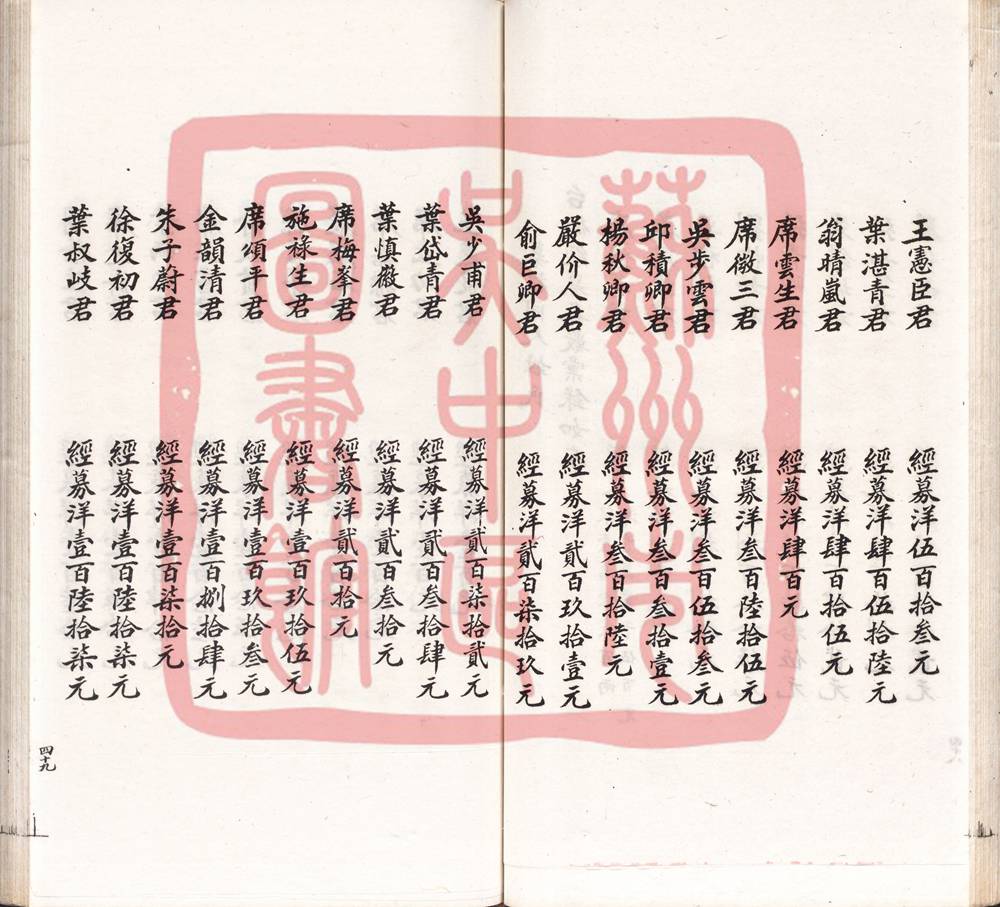 王憲臣君 經募洋伍百拾叁元
葉湛青君 經募洋肆百伍拾陸元
翁晴嵐君 經募洋肆百拾伍元
席雲生君 經募洋肆百元
席微三君 經募洋叁百陸拾伍元
吳步雲君 經募洋叁百伍拾叁元
邱積卿君 經募洋叁百叁拾壹元
楊秋卿君 經募洋叁百拾陸元
嚴价人君 經募洋貳百玖拾壹元
俞巨卿君 經募洋貳百柒拾玖元
吳少甫君 經募洋貳百柒拾貳元
葉岱青君 經募洋貳百叁拾肆元
葉慎徽君 經募洋貳百叁拾元
席梅峯君 經募洋貳百拾元
施祿生君 經募洋壹百玖拾伍元
席頌平君 經募洋壹百玖拾叁元
金韻清君 經募洋壹百捌拾肆元
朱子蔚君 經募洋壹百柒拾元
徐復初君 經募洋壹百陸拾柒元
葉叔岐君 經募洋壹百陸拾柒元
四十九
蘇州市
吳中區
圖書館